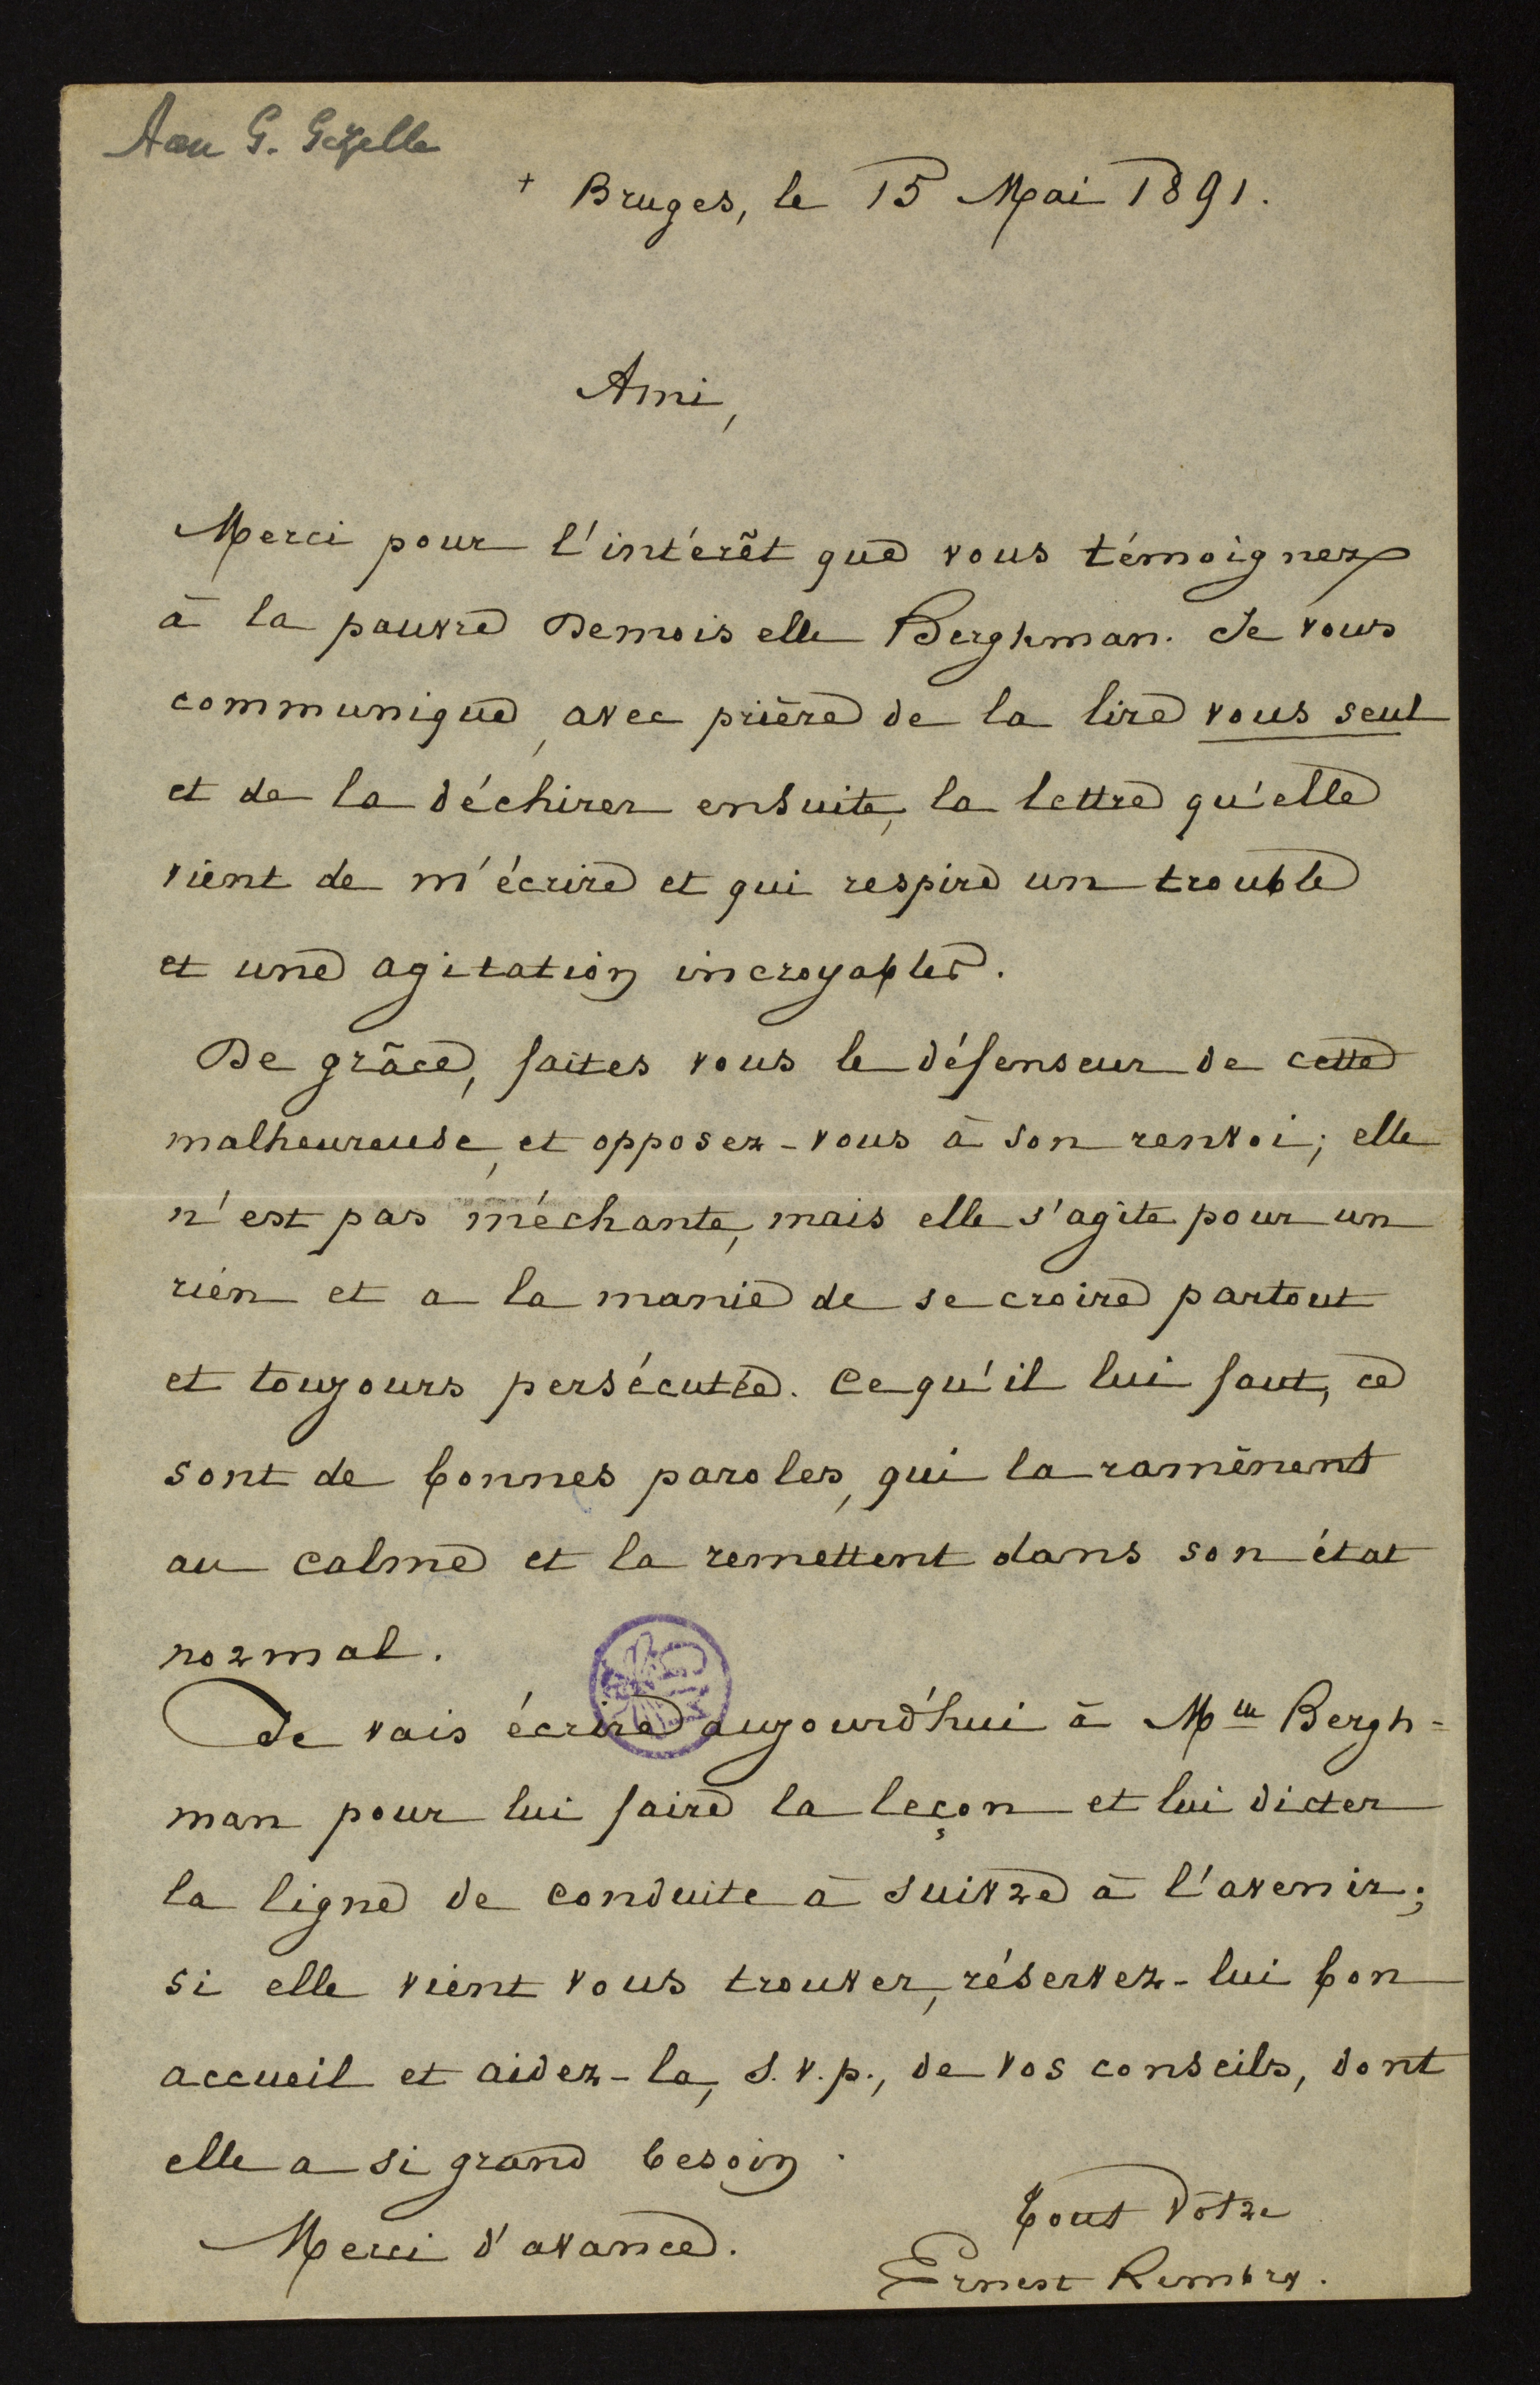 Aan G. Gezelle
+ Bruges, le 15 Mai 1891.
Ami,
Merci pour l'intérêt que vous témoignez
à la pauvre Demoiselle Berghman. Je vous
communique, avec prière de la lire vous seul
et de la déchirer ensuite, la lettre qu'elle
vient de m'écrire et qui respire un trouble
et une agitation incroyables.
De grâce, faites vous le défenseur de cette
malheureuse, et opposez-vous à son renvoi; elle
n'est pas méchante, mais elle s'agite pour un
rien et a la manie de se croire partout
et toujours persécutée. Ce qu'il lui faut, ce
sont de bonnes paroles, qui la ramènent
au calme et la remettent dans son état
normal.
Je vais écrire aujourd'hui à Mlle Bergh=
man pour lui faire la leçon et lui dicter
la ligne de conduite à suivre à l'avenir;
si elle vient vous trouver, réservez-lui bon
accueil et aidez-la, s.v.p., de vos conseils, dont
elle a si grand besoin.
Merci d'avance.
Tout vôtre
Ernest Rembry.